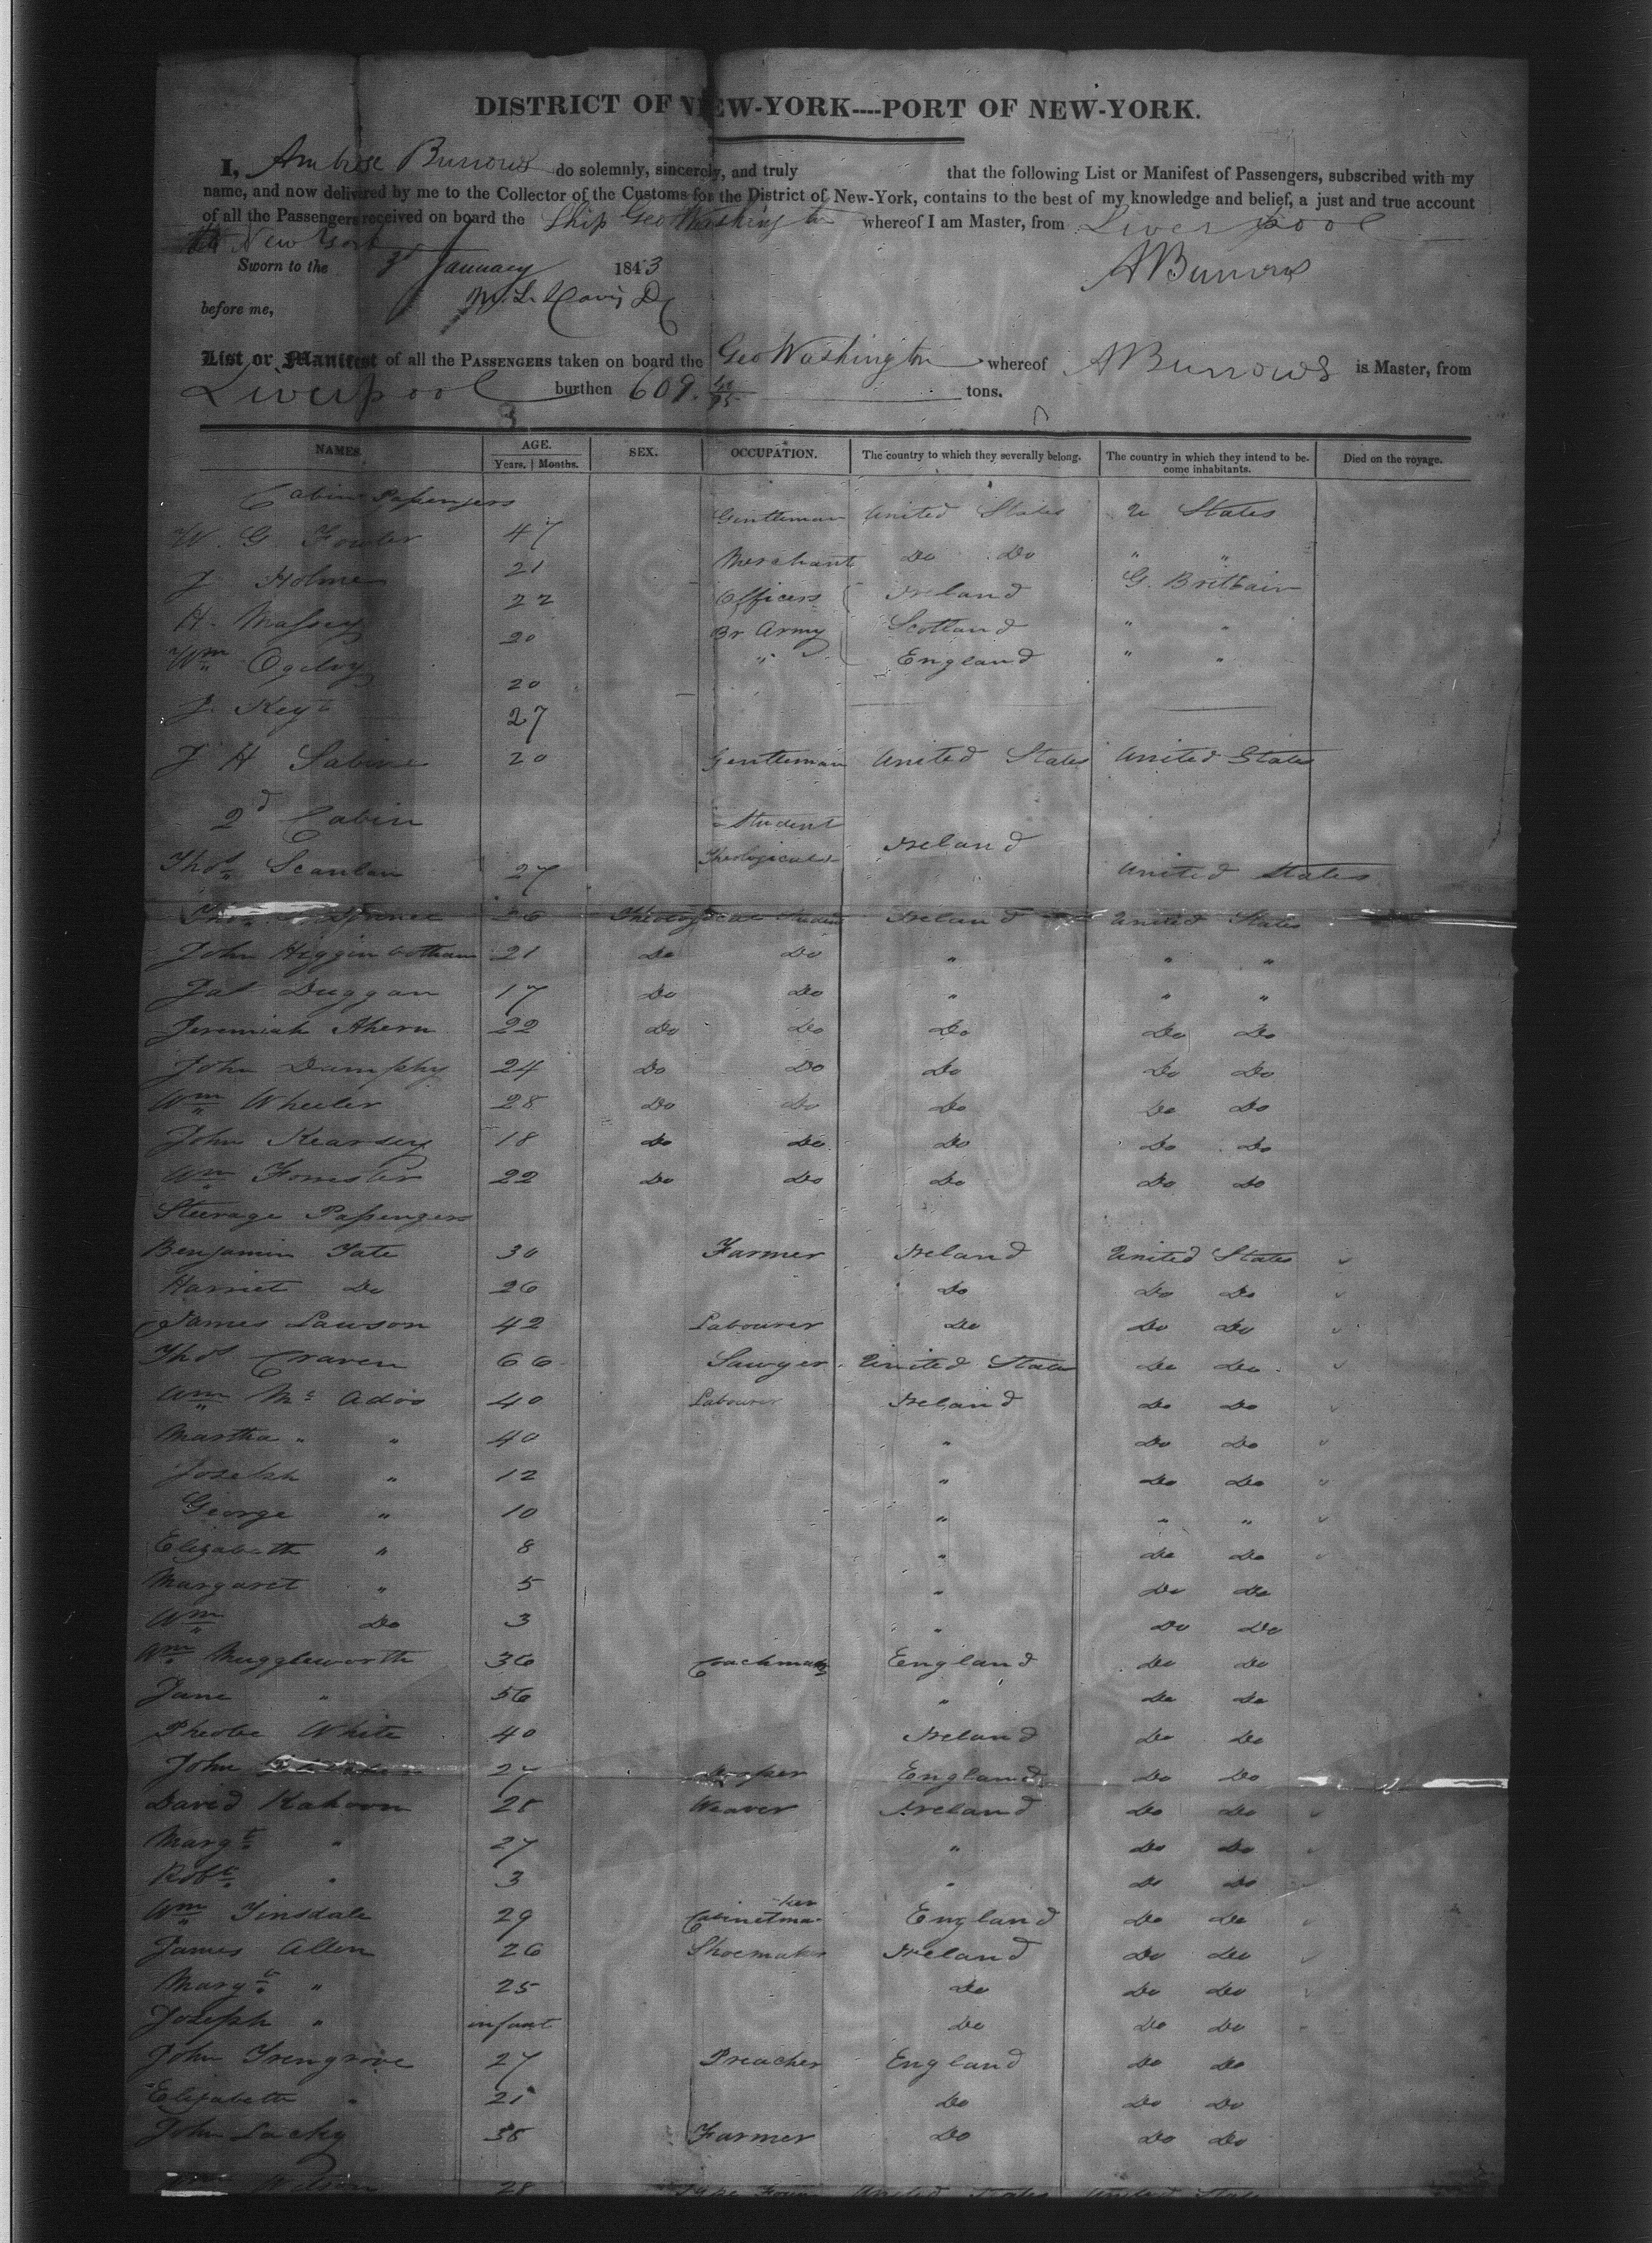 DISTRICT OF NEW-YORK----PORT OF NEW-YORK.
I, Ambrose Burrows do solemnly, sincerely, and truly that the following List or Manifest of Passengers, subscribed with my
name, and now delivered by me to the Collector of the Customs for the District of New-York, contains to the best of my knowledge and belief, a just and true account
of all the Passengers received on board the Ship Geo Washington whereof I am Master, from Liverpool
New York
Sworn to the 3d January 1843 A Burrows
before me,
List or Manifest of all the PASSENGERS taken on board the Geo Washington whereof A Burrows is Master, from
Liverpool burthen 609. tons.
NAMES. AGE. SEX. OCCUPATION. The country to which they severally belong. The country in which they intend to be- Died on the voyage.
Years. Months. come inhabitants.
Cabin Passengers
W. G. Fowler 47 Gentleman United States U States
J Holme 21 Merchant Do Do " "
H. Massey 22 Officers Ireland G. Brittain
Wm Ogilvy 20 Br Army Scotland " "
J. Key 20 " England " "
27
J H Sabine 20 Gentleman United States United States
2d Cabin
Thos Scanlan 27 Student Theological Ireland United States
26 Theological Student Ireland United States
John Higginbotham 21 Do Do " " "
Pat Duggan 17 Do Do " " "
Jeremiah Ahern 22 Do Do Do Do Do
John Dumphy 24 Do Do Do Do Do
Wm Wheeler 28 Do Do Do Do Do
John Kearsey 18 Do Do Do Do Do
Wm Forrester 22 Do Do Do Do Do
Steerage Passengers
Benjamin Tate 30 Farmer Ireland United States
Harriet Do 26 Do Do Do
James Lawson 42 Labourer Do Do Do
Thos Craven 66 Sawyer United States Do Do
Wm Mc Adoo 40 Labourer Ireland Do Do
Martha " " 40 " Do Do
Joseph " 12 " Do Do
George " 10 " " "
Elizabeth " 8 " Do Do
Margaret " 5 " Do Do
Wm Do 3 " Do Do
Wm Muggleworth 36 Coachman England Do Do
Jane " 56 " Do Do
Pheobe White 40 Ireland Do Do
John 27 England Do Do
David Kahoon 28 Weaver Ireland Do Do
Margt " 27 " Do Do
Robt " 3 " Do Do
Wm Tinsdale 29 Cabinetmaker England Do Do
James Allen 26 Shoemaker Ireland Do Do
Margt " 25 Do Do Do
Joseph " infant Do Do Do
John Trengrove 27 Preacher England Do Do
Elizabeth " 21 Do Do Do
John Lacky 38 Farmer Do Do Do
Wilson 28 United States United States